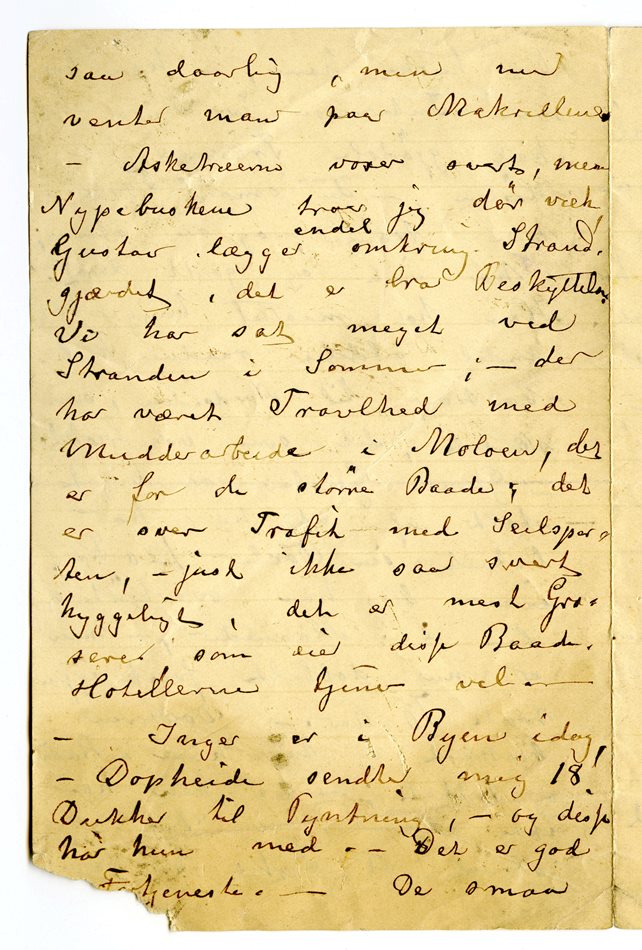 saa daarlig, men nu
venter man paa Makrellen
— Asketræerne voxer svert, men
Nypebuskene troer jeg dør væk,
Gustav lægger endel omkring Strand-
gjærdet, det er bra Beskyttelse.
Vi har sat meget ved
Stranden i Sommer; — der
har været Travlhed med
Mudderarbeide i Moloen, det
er for de større Baade; det
er svær Trafik med Seilspor-
ten, — just ikke saa svært
hyggeligt, det er mest Gros-
serer, som eier disse Baade.
Hotellerne tjener vel. —
— Inger er i Byen idag,
— Dopheide sendte mig 18
Dukker til Pyntning, — og disse
har hun med. — Det er god
Fortjeneste. — De smaa